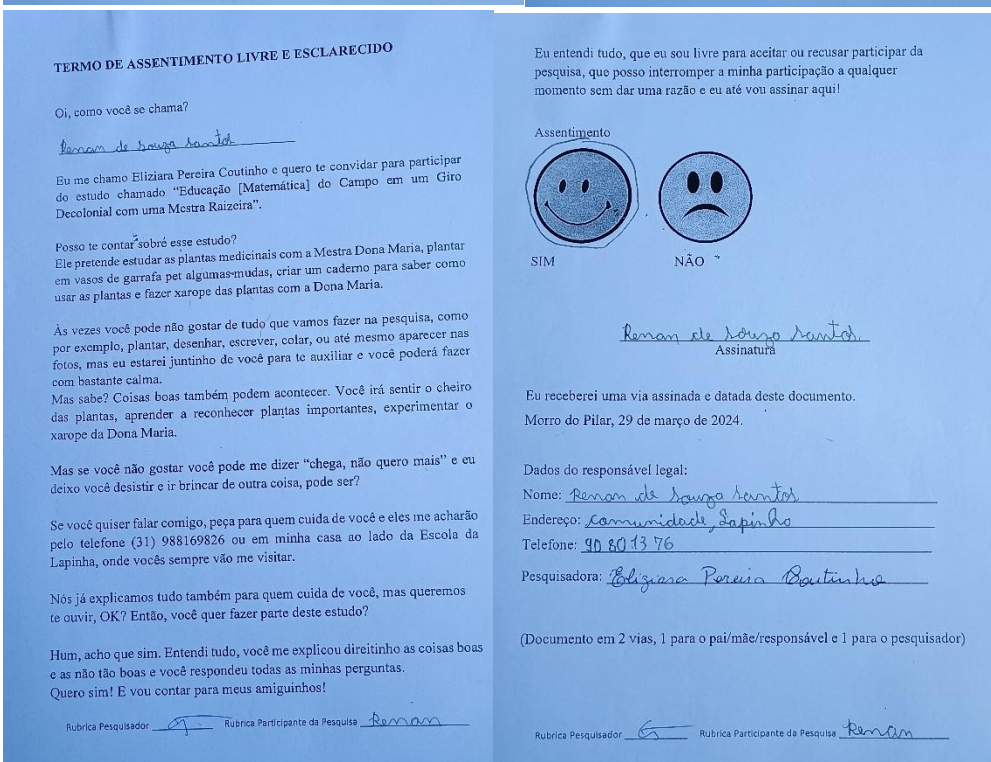 TERMO DE ASSENTIMENTO LIVRE E ESCLARECIDO
Oi, como você se chama?
Renan de Souza Santos
Eu me chamo Eliziara Pereira Coutinho e quero te convidar para participar
do estudo chamado “Educação [Matemática] do Campo em um Giro
Decolonial com uma Mestra Raizeira”.
Posso te contar sobre esse estudo?
Ele pretende estudar as plantas medicinais com a Mestra Dona Maria, plantar
em vasos de garrafa pet algumas mudas, criar um caderno para saber como
usar as plantas e fazer xarope das plantas com a Dona Maria.
Às vezes você pode não gostar de tudo que vamos fazer na pesquisa, como
por exemplo, plantar, desenhar, escrever, colar, ou até mesmo aparecer nas
fotos, mas eu estarei juntinho de você para te auxiliar e você poderá fazer
com bastante calma.
Mas sabe? Coisas boas também podem acontecer. Você irá sentir o cheiro
das plantas, aprender a reconhecer plantas importantes, experimentar o
xarope da Dona Maria.
Mas se você não gostar você pode me dizer “chega, não quero mais” e eu
deixo você desistir e ir brincar de outra coisa, pode ser?
Se você quiser falar comigo, peça para quem cuida de você e eles me acharão
pelo telefone (31) 988169826 ou em minha casa ao lado da Escola da
Lapinha, onde vocês sempre vão me visitar.
Nós já explicamos tudo também para quem cuida de você, mas queremos
te ouvir, OK? Então, você quer fazer parte deste estudo?
Hum, acho que sim. Entendi tudo, você me explicou direitinho as coisas boas
e as não tão boas e você respondeu todas as minhas perguntas.
Quero sim! E vou contar para meus amiguinhos!
Rubrica Pesquisador Rubrica Participante da Pesquisa Renan
Eu entendi tudo, que eu sou livre para aceitar ou recusar participar da
pesquisa, que posso interromper a minha participação a qualquer
momento sem dar uma razão e eu até vou assinar aqui!
Assentimento
SIM NÃO
Renan de Souza Santos
Assinatura
Eu receberei uma via assinada e datada deste documento.
Morro do Pilar, 29 de março de 2024.
Dados do responsável legal:
Nome: Renan de Souza Santos
Endereço: Comunidade, Lapinho
Telefone: 90 80 13 76
Pesquisadora: Eliziara Pereira Coutinho
(Documento em 2 vias, 1 para o pai/mãe/responsável e 1 para o pesquisador)
Rubrica Pesquisador Rubrica Participante da Pesquisa Renan